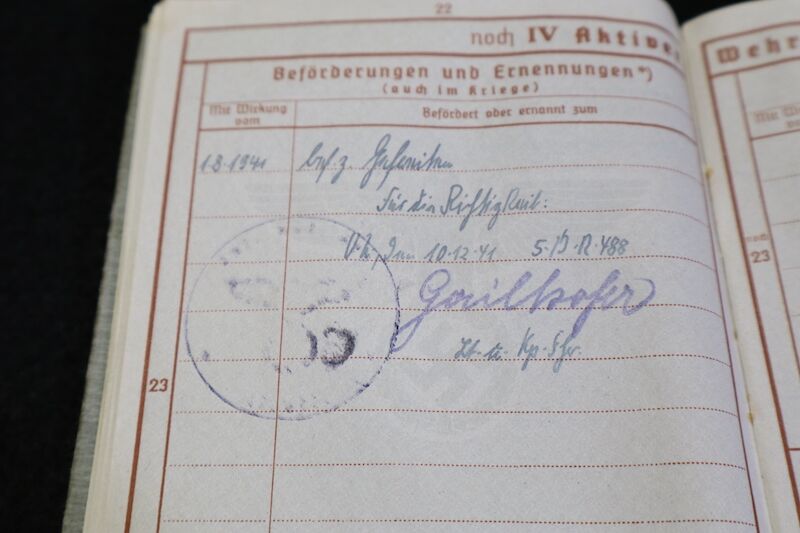 22
noch IV Aktiver
Beförderungen und Ernennungen*)
(auch im Kriege)
Mit Wirkung vom
Befördert oder ernannt zum
1.8.1941 bef. z. Gefreiten
Für die Richtigkeit:
den 10.12.41 5. J.R. 488
Gailhofer
Lt. u. Kp. Fhr.
23
Wehr
Mit
noch
23